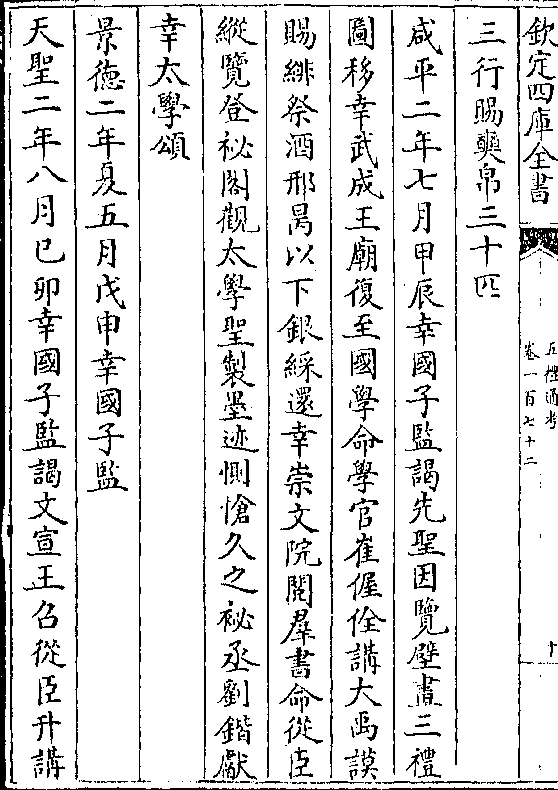 欽定四庫全書
五禮通考
卷一百七十二
十
三行賜奭帛三十匹
咸平二年七月甲辰幸國子監謁先聖因覽壁畫三禮
圖移幸武成王廟復至國學命學官崔偓佺講大禹謨
賜緋祭酒邢昺以下銀綵還幸崇文院閱羣書命從臣
縱覽登祕閣觀太學聖製墨迹惻愴久之祕丞劉鍇獻
幸太學頌
景徳二年夏五月戊申幸國子監
天聖二年八月已卯幸國子監謁文宣王召從臣升講